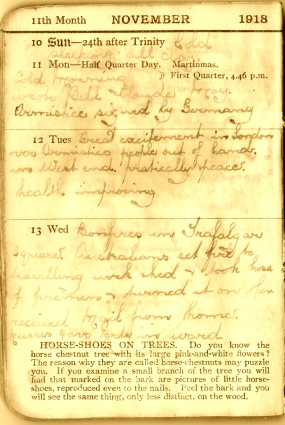 11th Month NOVEMBER 1918
10 Sun—24th after Trinity Cold
11 Mon—Half Quarter Day. Martinmas.
☽ First Quarter, 4.46 p.m.
Armistice signed by Germany
12 Tues Great excitement in London
over Armistice people out of hand
in West end. practically peace.
health improving
13 Wed Bonfires in Trafalgar
Square. Australians set fire to
work shed & took hose
of firemen & turned it on them
received mail from home.
in ward
HORSE-SHOES ON TREES. Do you know the
horse chestnut tree with its large pink-and-white flowers?
The reason why they are called horse-chestnuts may puzzle
you. If you examine a small branch of the tree you will
find that marked on the bark are pictures of little horse-
shoes, reproduced even to the nails. Peel the bark and you
will see the same thing, only less distinct, on the wood.